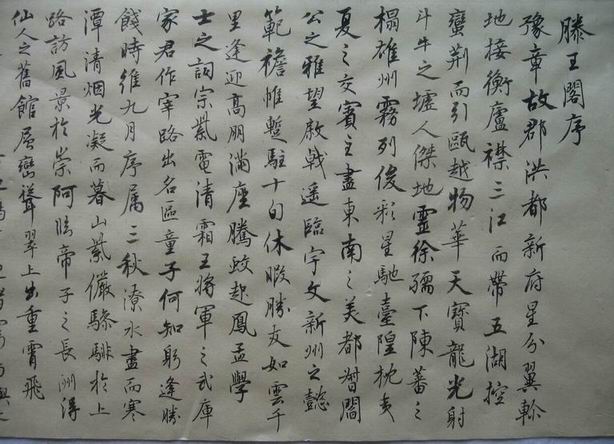 滕王閣序
豫章故郡洪都新府星分翼軫
地接衡廬襟三江而帶五湖控
蠻荊而引甌越物華天寶龍光射
斗牛之墟人傑地靈徐孺下陳蕃之
榻雄州霧列俊彩星馳臺隍枕夷
夏之交賓主盡東南之美都督閻
公之雅望棨戟遙臨宇文新州之懿
範襜帷暫駐十旬休暇勝友如雲千
里逢迎高朋滿座騰蛟起鳳孟學
士之詞宗紫電清霜王將軍之武庫
家君作宰路出名區童子何知躬逢勝
餞時維九月序属三秋潦水盡而寒
潭清烟光凝而暮山紫儼驂騑於上
路訪風景於崇阿臨帝子之長洲得
仙人之舊館層巒聳翠上出重霄飛